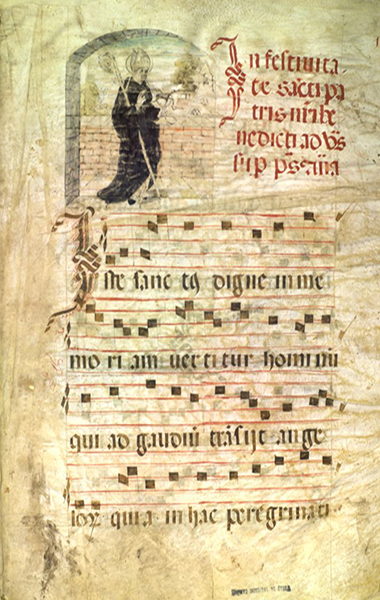 In festivita
te sācti pa
tris nr̄i be
nedicti ad vs̄
sup ps̄ āna
Iste sanctꝰ digne in me
moriam vertitur hominū
qui ad gaudiū trāsijt ange
loꝝ quia in hac peregrinati